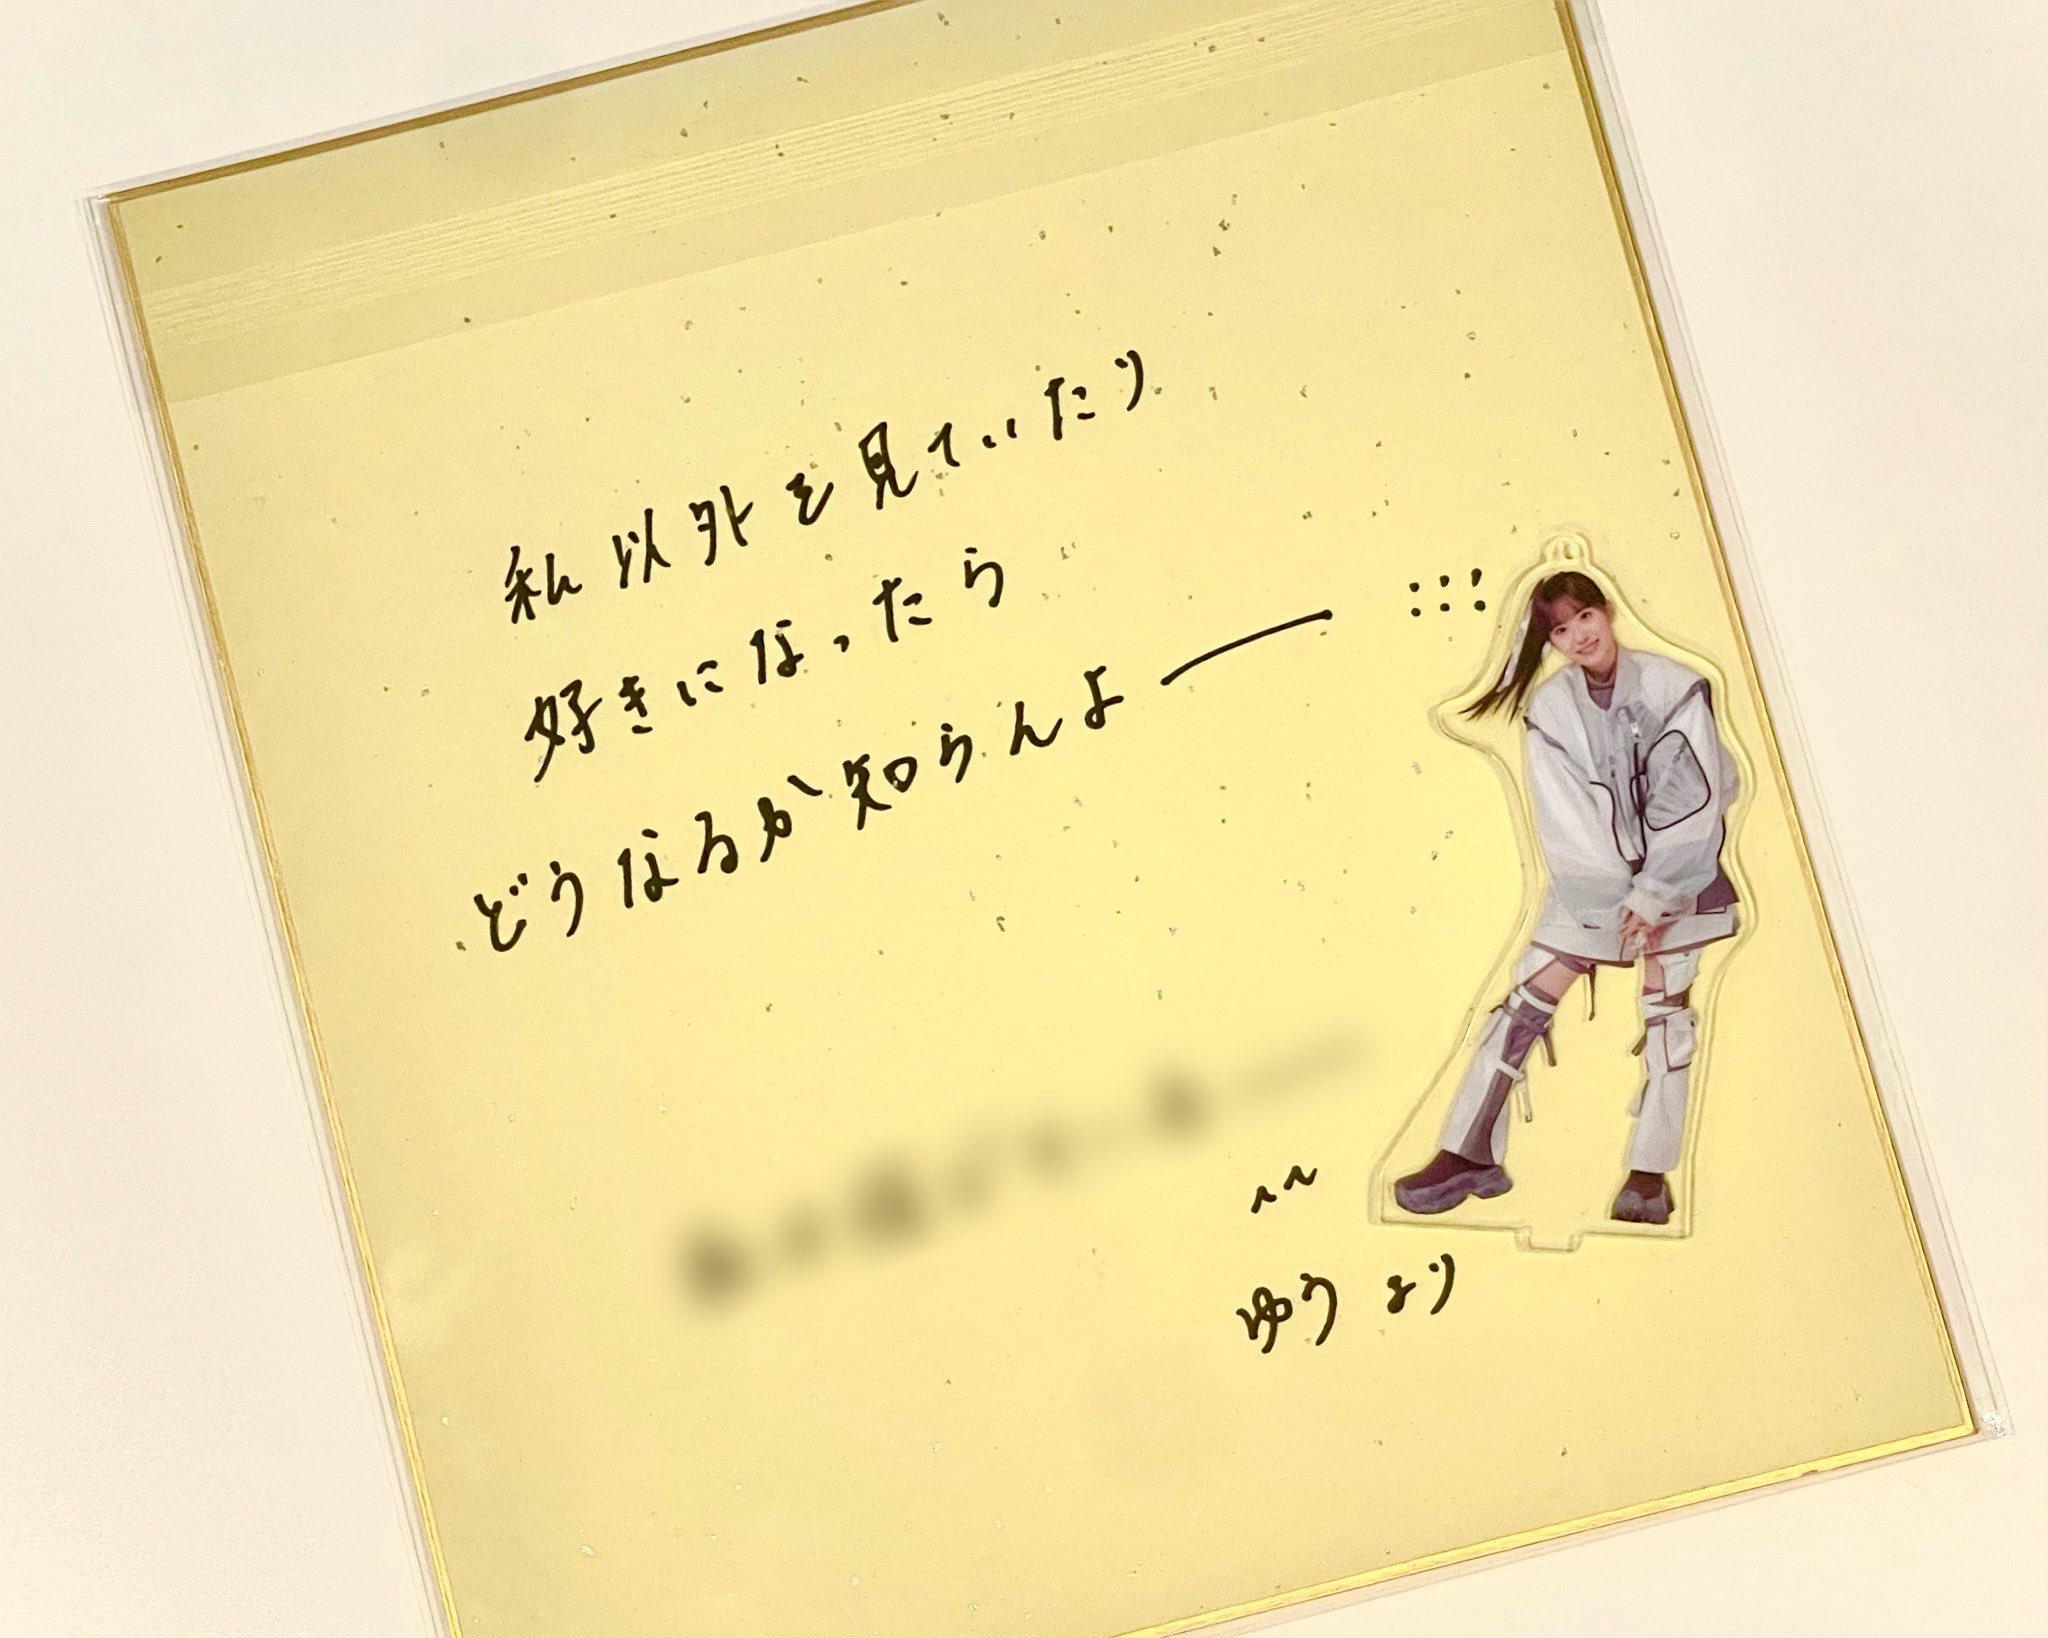 私以外を見ていたり
好きになったら
どうなるか知らんよー :::
^^
ゆうより